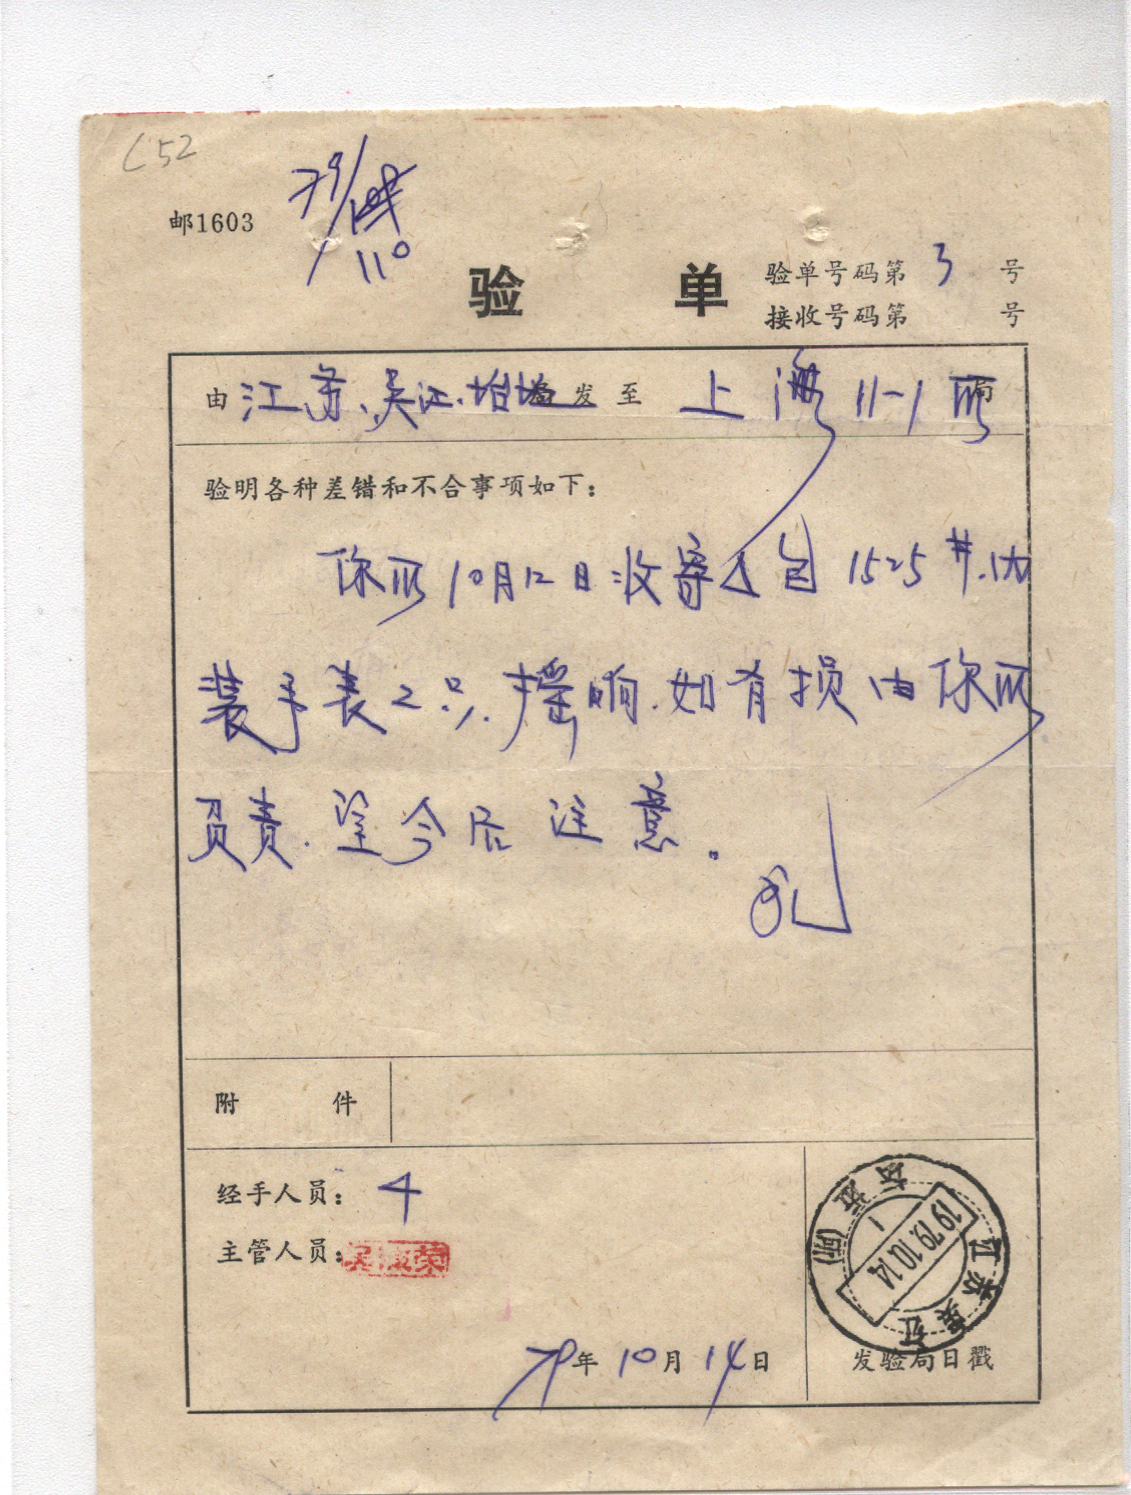 C52
79/
110
邮1603
验 单
验单号码第 3 号
接收号码第 号
由江苏.吴江.坛坵局发至 上海11-1所局
验明各种差错和不合事项如下：
你所10月12日收寄 包1525#.内
装手表2只.摇响.如有损由你所
负责.望今后注意。
附 件
经手人员：
主管人员：吴淑荣
79年10月14日
江苏吴江 坛坵(所)
1979.10.14
1
发验局日戳